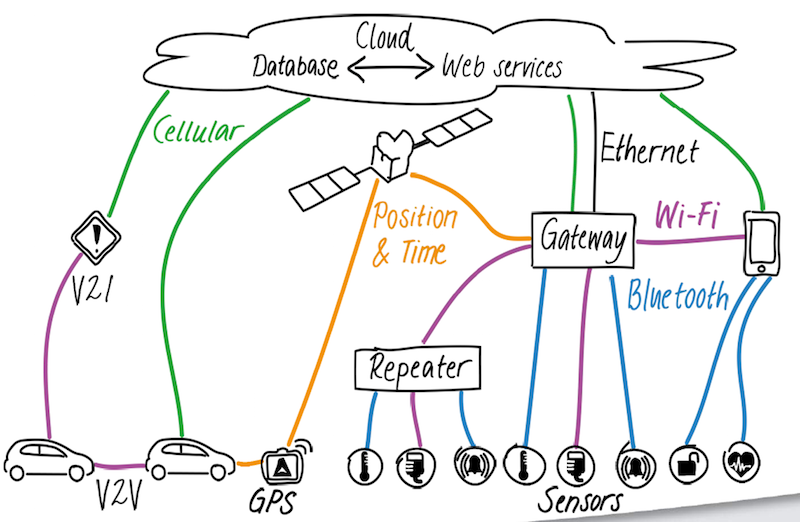 Cloud
Database
Web services
Cellular
Ethernet
Position
& Time
Wi-Fi
Gateway
V2I
Bluetooth
Repeater
V2V
GPS
Sensors